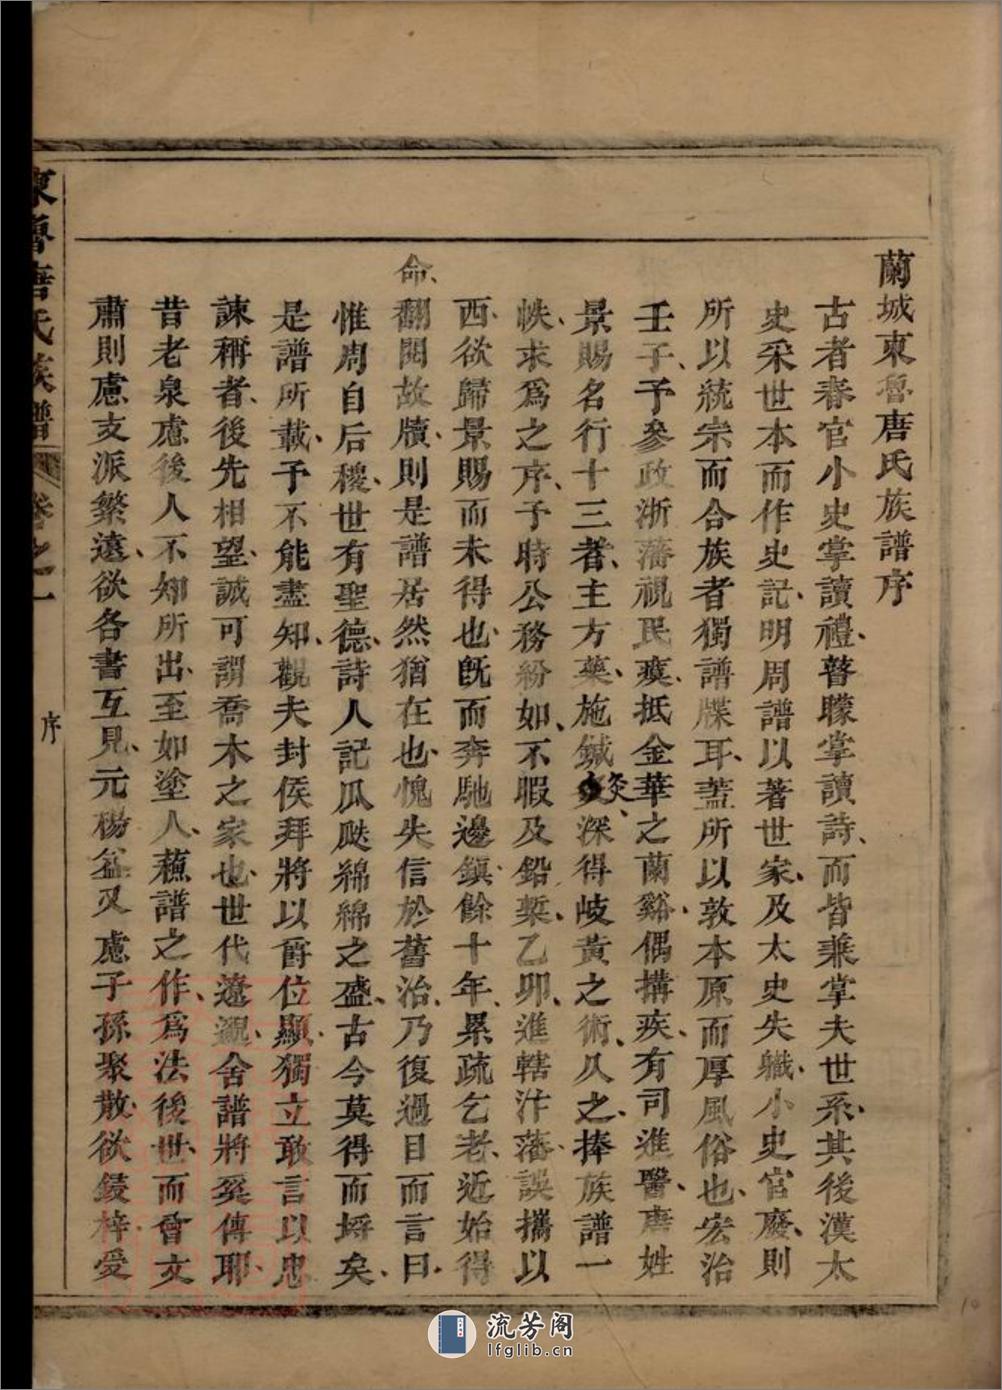 蘭城東魯唐氏族譜序
古者春官小史掌讀禮瞽矇掌讀詩而皆兼掌夫世系其後漢太
史采世本而作史記明周譜以著世家及太史失職小史官廢則
所以統宗而合族者獨譜牒耳蓋所以敦本原而厚風俗也宏治
壬子予參政浙藩視民瘼抵金華之蘭谿偶搆疾有司進醫唐姓
景賜名行十三者主方藥施鍼灸深得岐黃之術久之捧族譜一
帙求爲之序予時公務紛如不暇及鉛槧乙卯進轄汴藩誤攜以
西欲歸景賜而未得也旣而奔馳邊鎭餘十年累疏乞老近始得
命翻閱故牘則是譜居然猶在也愧失信於舊治乃復過目而言曰
惟周自后稷世有聖德詩人記瓜瓞綿綿之盛古今莫得而埓矣
是譜所載予不能盡知觀夫封侯拜將以爵位顯獨立敢言以忠
諫稱者後先相望誠可謂喬木之家也世代遼邈舍譜將奚傳耶
昔老泉慮後人不知所出至如塗人蘓譜之作爲法後世而曾文
肅則慮支派繁遠欲各書互見元楊益又慮子孫聚散欲鋟梓受
東魯唐氏族譜 卷之一 序
流芳阁
lfglib.cn
10